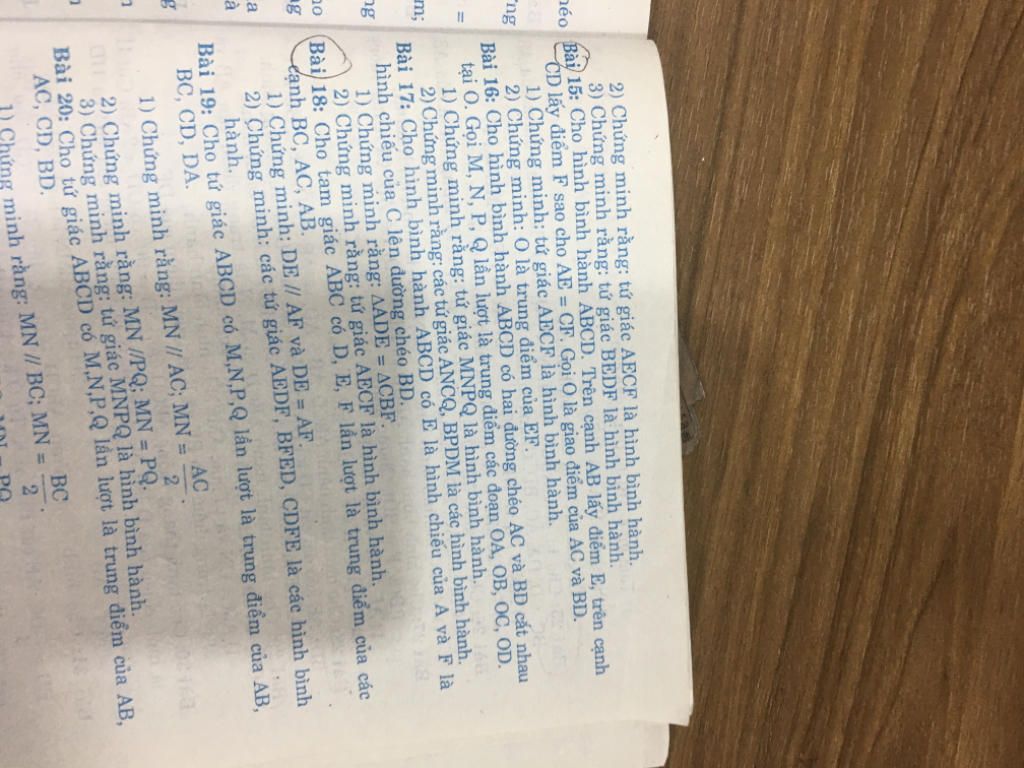 2) Chứng minh rằng: tứ giác AECF là hình bình hành.
3) Chứng minh rằng: tứ giác BEDF là hình bình hành.
Bài 15: Cho hình bình hành ABCD. Trên cạnh AB lấy điểm E, trên cạnh
CD lấy điểm F sao cho AE = CF. Gọi O là giao điểm của AC và BD.
1) Chứng minh: tứ giác AECF là hình bình hành.
2) Chứng minh: O là trung điểm của EF.
Bài 16: Cho hình bình hành ABCD có hai đường chéo AC và BD cắt nhau
tại O. Gọi M, N, P, Q lần lượt là trung điểm các đoạn OA, OB, OC, OD.
1) Chứng minh rằng: tứ giác MNPQ là hình bình hành.
2) Chứng minh rằng: các tứ giác ANCQ, BPDM là các hình bình hành.
Bài 17: Cho hình bình hành ABCD có E là hình chiếu của A và F là
hình chiếu của C lên đường chéo BD.
1) Chứng minh rằng: ΔADE = ΔCBF.
2) Chứng minh rằng: tứ giác AECF là hình bình hành.
Bài 18: Cho tam giác ABC có D, E, F lần lượt là trung điểm của các
cạnh BC, AC, AB.
1) Chứng minh: DE // AF và DE = AF.
2) Chứng minh: các tứ giác AEDF, BFED, CDFE là các hình bình
hành.
Bài 19: Cho tứ giác ABCD có M,N,P,Q lần lượt là trung điểm của AB,
BC, CD, DA.
1) Chứng minh rằng: MN // AC; MN = AC/2.
2) Chứng minh rằng: MN //PQ; MN = PQ.
3) Chứng minh rằng: tứ giác MNPQ là hình bình hành.
Bài 20: Cho tứ giác ABCD có M,N,P,Q lần lượt là trung điểm của AB,
AC, CD, BD.
1) Chứng minh rằng: MN // BC; MN = BC/2.